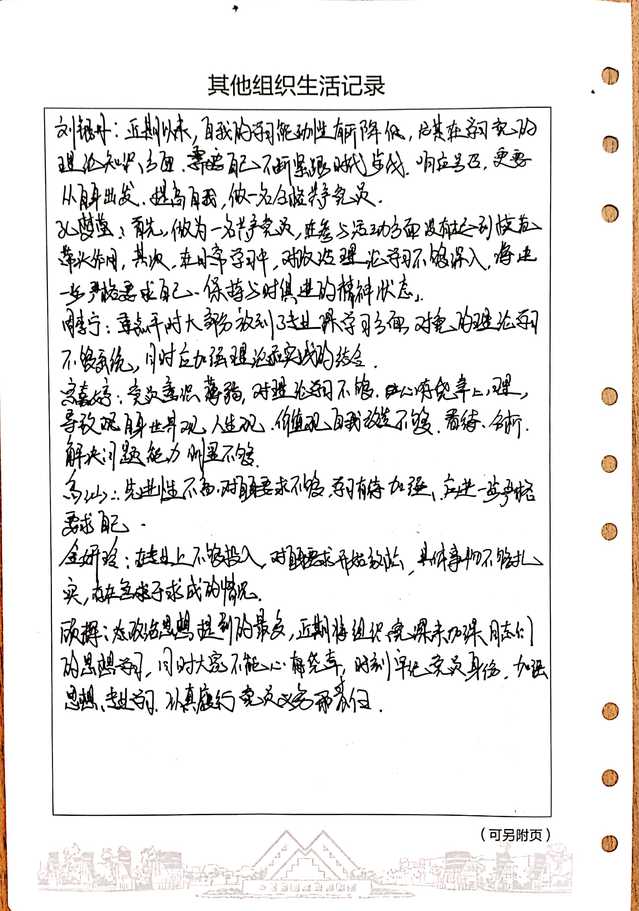 其他组织生活记录
刘银丹：近期以来，自我的学习能动性有所降低，尤其在学习党的
理论知识方面，需要自己不断紧跟时代步伐，响应号召，更要
从自身出发，提高自我，做一名合格共产党员。
孔 莹：首先，做为一名共产党员，在参与活动方面没有达到
带头作用，其次，在日常学习中，对政治理论学习不够深入，将进
一步严格要求自己，保持与时俱进的精神状态。
周 宁：平时大部分放到了专业课学习方面，对党的理论学习
不够系统，同时应加强理论和实践的结合。
嘉婷：党员意识薄弱，对理论学习不够，心存侥幸心理，
导致 自身世界观、人生观、价值观自我改造不够，看待、分析、
解决问题能力 不够。
先进性不高，对自身要求不够，学习有待加强，应进一步严格
要求自己。
玲：在专业上不够投入，对自身要求开始放松，具体事物不够扎
实，存在急于求成的情况。
顾辉：在政治思想提到的最多，近期将组织党课来加深同志们
的思想学习，同时大家不能心存侥幸，时刻牢记党员身份，加强
思想、专业学习，认真履行党员义务和责任。
（可另附页）